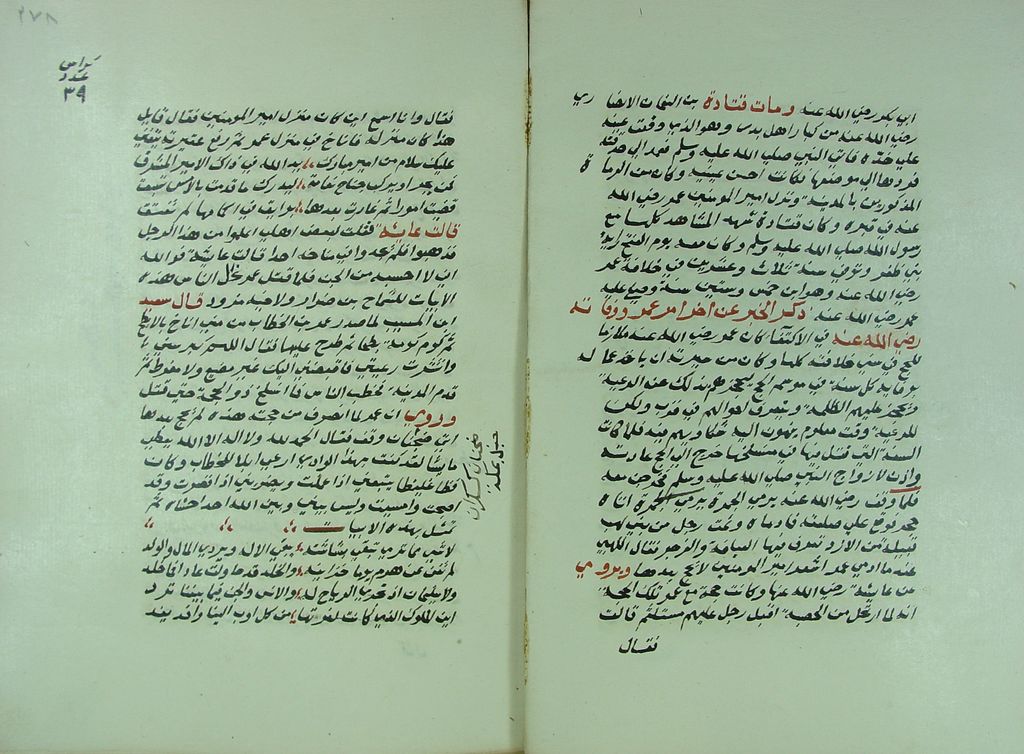 ابي بكر رضي الله عنه ومات قتادة بن النعمان الانصاري
رضي الله عنه من كبار اهل بدر وهو الذي وقعت عينه
علي خده فاتي النبي صلي الله عليه وسلم فمد الي حدقته
فردها الي موضعها فكانت احسن عينيه وكان من الرماة
المذكورين بالمدينة ونزل امير المومنين عمر رضي الله
عنه في قبره وكان قتادة شهد المشاهد كلها مع
رسول الله صلي الله عليه وسلم وكان معه يوم الفتح راية
بني ظفر وتوفي سنة ثلاث وعشرين في خلافة عمر
رضي الله عنه وهو ابن خمس وستين سنة وصلي عليه
عمر رضي الله عنه ذكر الخبر عن اخر امر عمر ووفاته
رضي الله عنه في الاكتفا كان عمر رضي الله عنه ملازما
للحج في سني خلافته كلها وكان من سيرته ان ياخذ عماله
بوفاية كل سنة في موسم الحج يحجرهم بذلك عن الرعية
ويحجر عليهم الظلمة ويتعرف احوالهم في قرب وليكن
للرعية وقت معلوم ينهون اليه شكاويهم فيه فلما كانت
السنة التي قتل فيها في منسلخها خرج الي الحج علي عادته
واذن لازواج النبي صلي الله عليه وسلم فخرجن معه
فلما وقف رضي الله عنه يرمي الجمرة يرمي الجمرة اتاه
حجر فوقع علي صلعته فادماه وثمت رجل من بني لهب
قبيلة من الازد تعرف فيها العيافة والزجر فقال اللهبي
عند ما ادمي عمر اشعر امير المومنين لا يحج بعدها ويروي
عن عائشة رضي الله عنها وكانت حجت مع عمر تلك الحجة
انه لما ارتحل من الحصبة اقبل رجل عليهم متلثم قالت
فقال
كراس
عدد
٣٩
فقال وانا اسمع اين كان منزل امير المومنين فقال قايل
هذا كان منزله فاناخ في منزل عمر ثم رفع عقيرته يتغني
عليك سلام من امير وباركت يد الله في ذاك الاديم الممزق
فمن يجر او يركب جناحي نعامة ليدرك ما قدمت بالامس تسبق
قضيت امورا ثم غادرت بعدها بوايق في اكمامها لم تفتق
قالت عايشة فقلت لبعض اهلي اعلموا من هذا الرجل
فذهبوا فلم يجدوا في مناخه احدا قالت عائشة فوالله
اني لا احسبه من الجن فلما قتل عمر نحل الناس هذه
الابيات للشماخ بن ضرار ولاخيه مزرد قال سعيد
ابن المسيب لما صدر عمر بن الخطاب من مني اناخ بالابطح
ثم كوم كومة بطحا ثم طرح عليها فقال اللهم كبر سني
وانتشرت رعيتي فاقبضني اليك غير مضيع ولا مفرط ثم
قدم المدينة فخطب الناس فما انسلخ ذو الحجة حتي قتل
وروي ان عمر لما انصرف من حجته هذه لم يحج بعدها
اتي ضجنان وقف فقال الحمد لله ولا اله الا الله يعطي
ما يشا لقد كنت بهذا الوادي ارعي ابلا للخطاب وكان
فظا غليظا يتعبني اذا عملت ويضربني اذا قصرت وقد
اصبحت وامسيت وليس بيني وبين الله احد اخشاه ثم
تمثل بهذه الابيات
لا شي مما تري تبقي بشاشته يبقي الاله ويردي المال والولد
لم تغن عن هرمز يوما خزاينه والخلد قد حاولت عاد فما خلدوا
ولا سليمان اذ تجري الرياح له والانس والجن فيما بينها ترد
اين الملوك التي كانت لعزتها من كل اوب اليها وافد يفد
ضجنان
جبل بمكة